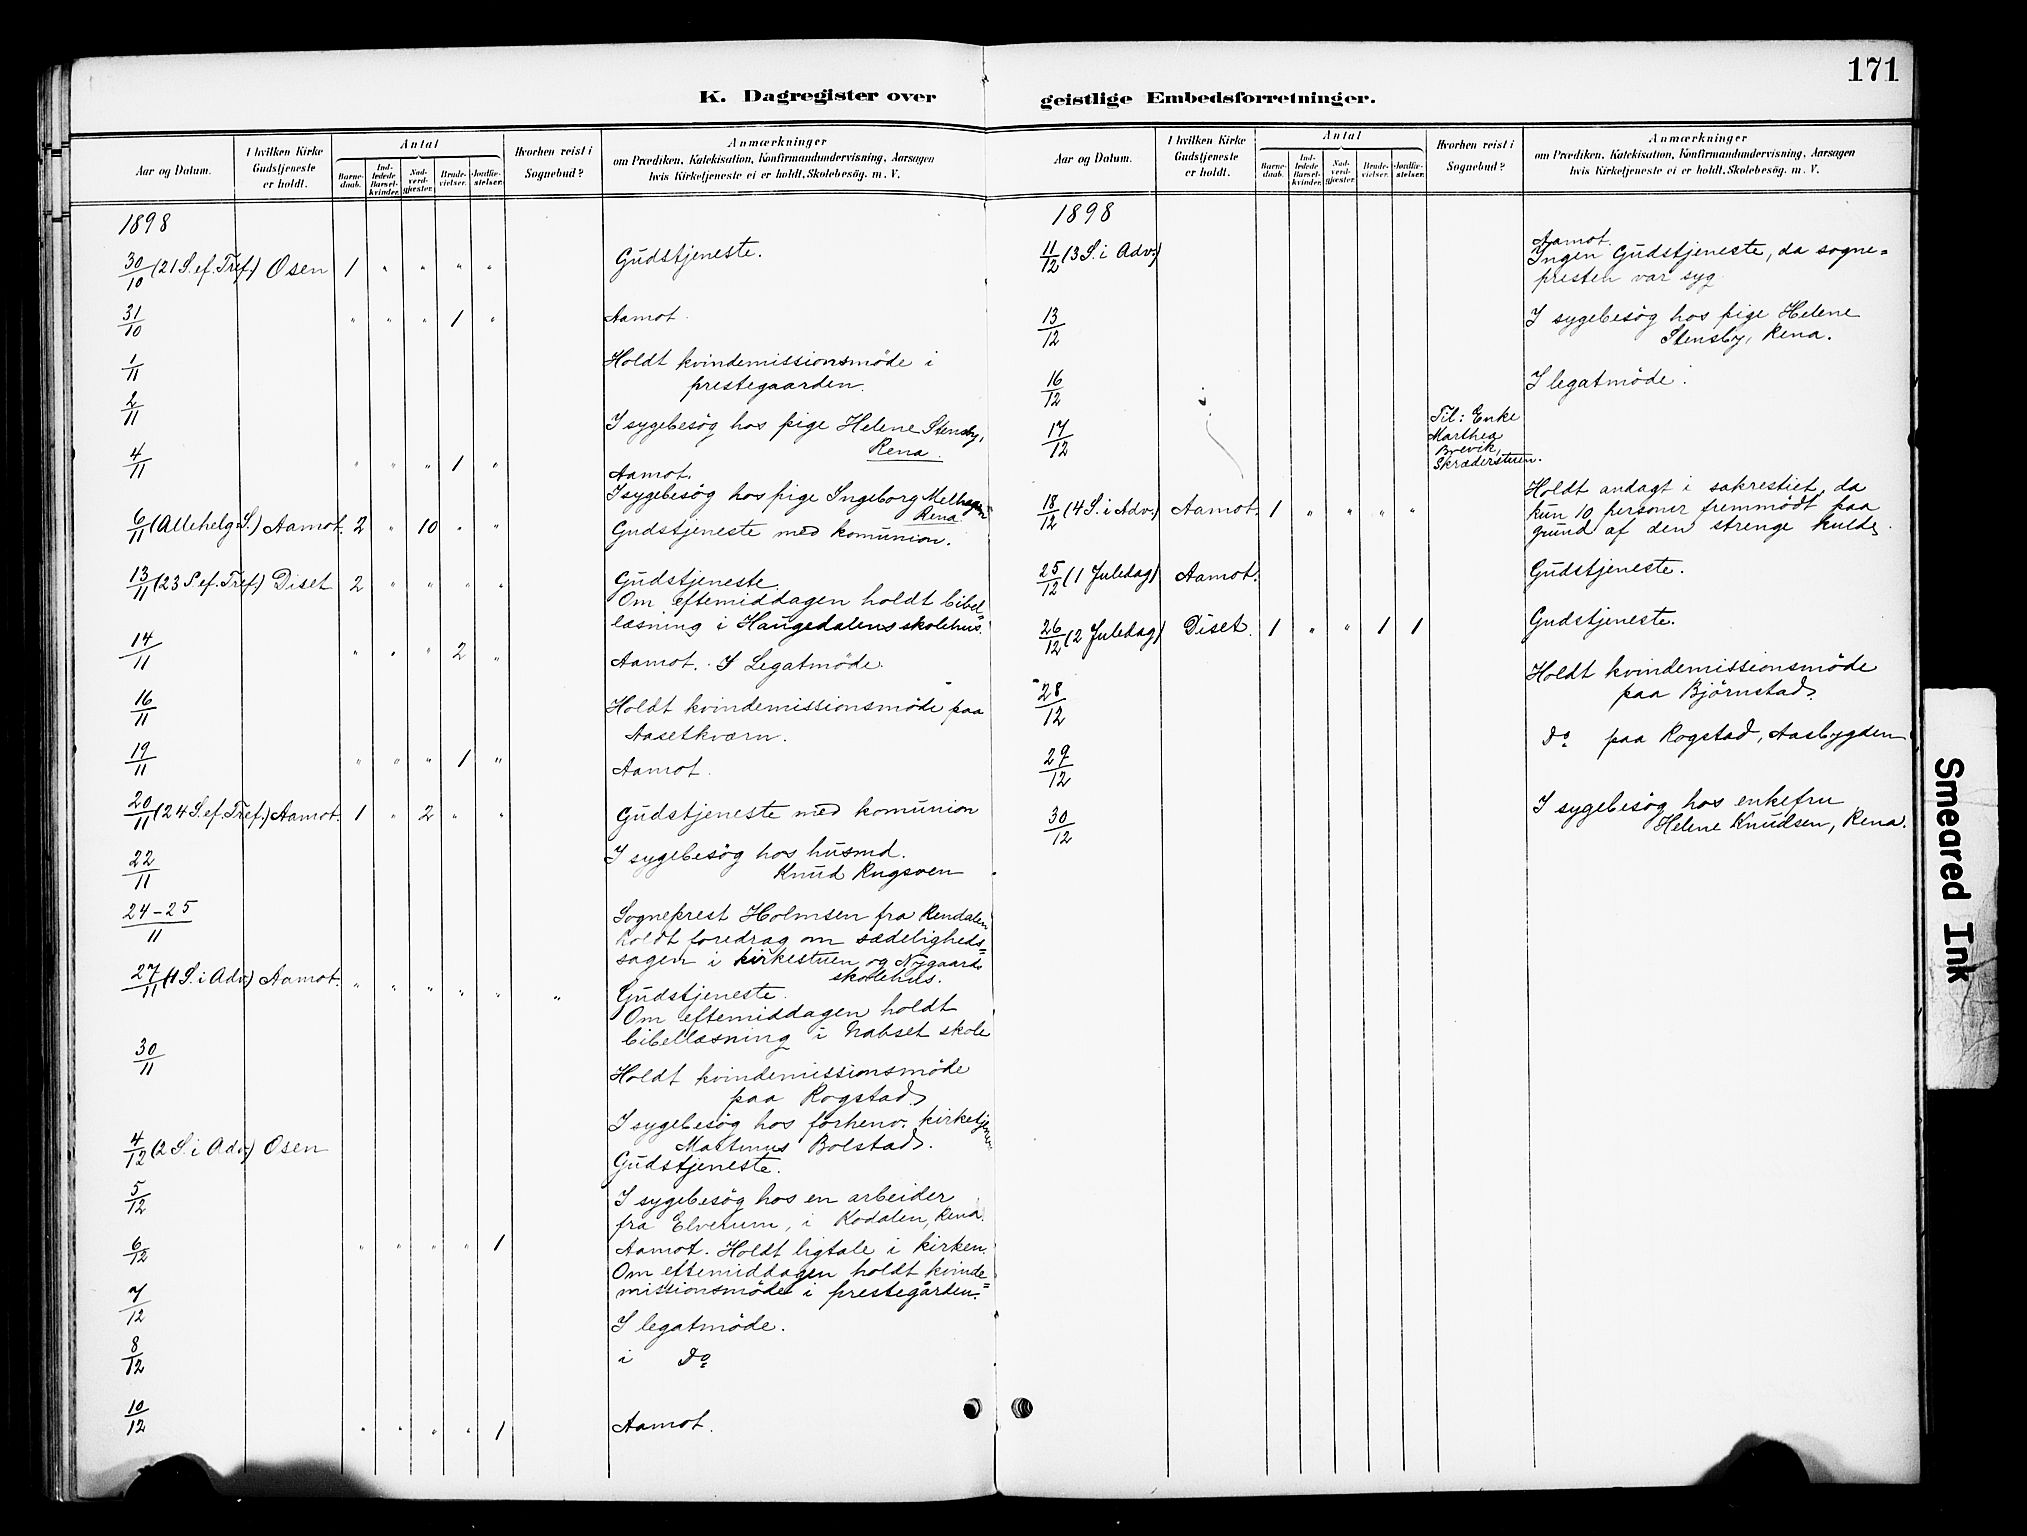 171
K. Dagregister over geistlige Embedsforretninger.
Aar og Datum. I hvilken Kirke Gudstjeneste er holdt. Antal Barnedaab. Indledede Barselkvinder. Nadverdgjester. Brudevielser. Jordfæstelser. Hvorhen reist i Sognebud? Anmærkninger om Prædiken, Katekisation, Konfirmandundervisning, Aarsagen hvis Kirketjeneste ei er holdt, Skolebesøg. m. V.
1898
30/10 (21 S. ef. Tref.) Osen 1 " " " " Gudstjeneste.
31/10 " " " 1 " Aamot.
1/11 Holdt kvindemissionsmöde i
prestegaarden.
2/11 I sygebesög hos pige Helene Stensby,
Rena.
4/11 " " " 1 " Aamot.
I sygebesög hos pige Ingeborg Melhagen
Rena
6/11 (Allehelg. S.) Aamot. 2 " 10 " " Gudstjeneste med komunion.
13/11 (23 S ef. Tref.) Diset 2 " " " " Gudstjeneste
Om eftemiddagen holdt bibel=
læsning i Haugedalens skolehus.
14/11 " " " 2 " Aamot. I Legatmöde.
16/11 Holdt kvindemissionsmöde paa
Aasetkværn.
19/11 " " " 1 " Aamot.
20/11 (24 S. ef. Tref.) Aamot. 1 " 2 " " Gudstjeneste med komunion
22/11 I sygebesög hos husmd.
Knud Rugsveen
24-25/11 Sogneprest Holmsen fra Rendalen
holdt foredrag om sædeligheds=
sagen i kirkestuen og Nygaards
skolehus.
27/11 (1 S. i Adv.) Aamot. " " " " " " Gudstjeneste.
Om eftemiddagen holdt
bibellæsning i Nabset skole
30/11 Holdt kvindemissionsmöde
paa Rogstad.
I sygebesög hos forhenv. kirketjener
Martinus Bolstad.
4/12 (2 S. i Adv.) Osen Gudstjeneste.
5/12 I sygebesög hos en arbeider
fra Elverum, i Kodalen, Rena.
6/12 " " " " 1 Aamot. Holdt ligtale i kirken.
Om eftemiddagen holdt kvinde=
missionsmöde i prestegården.
7/12 I legatmöde.
8/12 i do
10/12 " " " " 1 Aamot.
Aar og Datum. I hvilken Kirke Gudstjeneste er holdt. Antal Barnedaab. Indledede Barselkvinder. Nadverdgjester. Brudevielser. Jordfæstelser. Hvorhen reist i Sognebud? Anmærkninger om Prædiken, Katekisation, Konfirmandundervisning, Aarsagen hvis Kirketjeneste ei er holdt, Skolebesøg. m. V.
1898
11/12 (3 S. i Adv.) Aamot.
Ingen Gudstjeneste, da sogne=
presten var syg
13/12 I sygebesög hos pige Helene
Stensby, Rena.
16/12 I legatmöde.
17/12 Til: Enke
Marthea
Brevik,
Skræderstuen.
18/12 (4 S. i Adv.) Aamot. 1 " " " " Holdt andagt i sakrestiet, da
kun 10 personer fremmödt paa
grund af den strenge kulde.
25/12 (1 Juledag) Aamot. Gudstjeneste.
26/12 (2 Juledag) Diset. 1 " " 1 1 Gudstjeneste.
28/12 Holdt kvindemissionsmöde
paa Björnstad.
29/12 do paa Rogstad, Aasbygden
30/12 I sygebesög hos enkefru
Helene Knudsen, Rena.
Smeared Ink